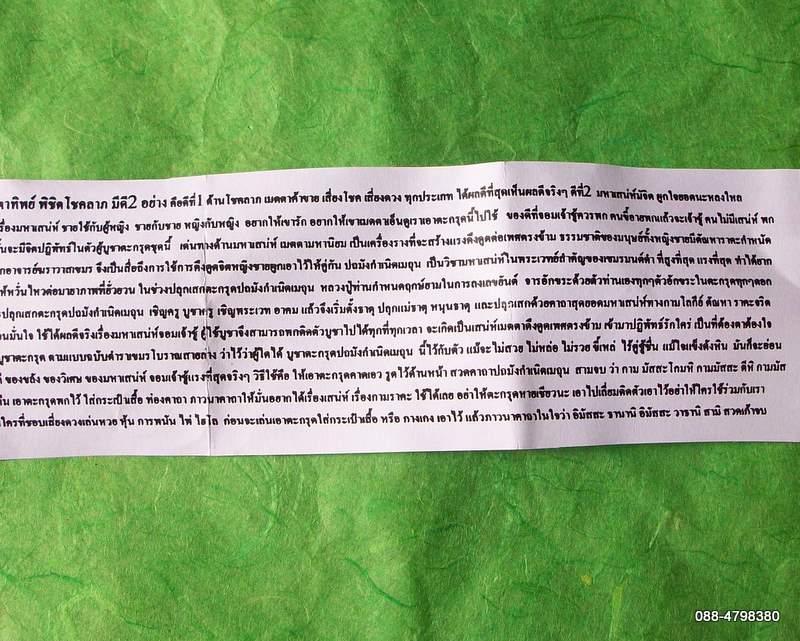 าทิพย์ พิชิตโชคลาภ มีดี2 อย่าง คือดีที่1 ด้านโชคลาภ เมตตาค้าขาย เสี่ยงโชค เสี่ยงดวง ทุกประเภท ได้ผลดีที่สุดเห็นผลดีจริงๆ ดีที่2 มหาเสน่ห์มัจิต ผูกใจยอดนะหลงไหล
รื่องมหาเสน่ห์ ชายใช้กับผู้หญิง ชายกับชาย หญิงกับหญิง อยากให้เขารัก อยากให้เขาเมตตาเอ็นดูเราเอาตะกรุดนี้ไปใช้ ของดีที่จอมเจ้าชู้ควรพก คนขี้อายพกแล้วจะเจ้าชู้ คนไม่มีเสน่ห์ พก
จะมีจิตปฏิพัทธ์ในตัวผู้บูชาตะกรุดชุดนี้ เด่นทางด้านมหาเสน่ห์ เมตตามหานิยม เป็นเครื่องรางที่จะสร้างแรงดึงดูดต่อเพศตรงข้าม ธรรมชาติของมนุษย์ทั้งหญิงชายมีตัณหาราคะกำหนัด
กอาจารย์ฆราวาสเขมร จึงเป็นสื่อถึงการใช้การดึงดูดจิตหญิงชายผูกเอาไว้ให้คู่กัน ปถมังกำเนิดเมถุน เป็นวิชามหาเสน่ห์ในพระเวทย์สำคัญของเขมรมนต์ดำ ที่สูงที่สุด แรงที่สุด ทำได้ยาก
ให้หวั่นไหวต่อมายาภาพที่ยั่วยวน ในช่วงปลุกเสกตะกรุดปถมังกำเนิดเมถุน หลวงปู่ท่านกำหนดฤกษ์ยามในการลงเลขยันต์ จารอักขระด้วยตัวท่านเองทุกๆตัวอักขระในตะกรุดทุกๆดอก
ปลุกเสกตะกรุดปถมังกำเนิดเมถุน เชิญครู บูชาครู เชิญพระเวท อาคม แล้วจึงเริ่มตั้งธาตุ ปลุกแม่ธาตุ หนุนธาตุ และปลุกเสกด้วยคาถาสุดยอดมหาเสน่ห์ทางกามโลกีย์ ตัณหา ราคะจริต
อนมั่นใจ ใช้ได้ผลดีจริงเรื่องมหาเสน่ห์จอมเจ้าชู้ ผู้ใช้บูชาจึงสามารถพกติดตัวบูชาไปได้ทุกที่ทุกเวลา จะเกิดเป็นเสน่ห์เมตตาดึงดูดเพศตรงข้าม เข้ามาปฏิพัทธ์รักใคร่ เป็นที่ต้องตาต้องใจ
บูชาตะกรุด ตามแบบฉบับตำราเขมรโบราณสายล่าง ว่าไว้ว่าผู้ใดได้ บูชาตะกรุดปถมังกำเนิดเมถุน นี้ไว้กับตัว แม้จะไม่สวย ไม่หล่อ ไม่รวย ขี้เหล่ ไร้คู่ชู้ชื่น แม้ใจแข็งดั่งหิน มันก็จะอ่อน
ดี ของขลัง ของวิเศษ ของมหาเสน่ห์ จอมเจ้าชู้แรงที่สุดจริงๆ วิธีใช้คือ ให้เอาตะกรุดคาดเอว รูดไว้ด้านหน้า สวดคาถาปถมังกำเนิดเมถุน สามจบ ว่า กาม มัสสะโกมหิ กามมัสสะ ดีหิ กามมัส
เอาตะกรุดพกไว้ ใส่กระเป๋าเสื้อ ท่องคาถา ภาวนาคาถาให้มั่นอยากได้เรื่องเสน่ห์ เรื่องกามราคะ ใช้ได้เลย อย่าให้ตะกรุดหายเชียวนะ เอาไปเลี่ยมติดตัวเอาไว้อย่าให้ใครใช้ร่วมกับเรา
ใครที่ชอบเสี่ยงดวงเล่นหวย หุ้น การพนัน ไพ่ ไฮโล ก่อนจะเล่นเอาตะกรุดใส่กระเป๋าเสื้อ หรือ กางเกง เอาไว้ แล้วภาวนาคาถาในใจว่า อิมัสสะ ธานานิ อิมัสสะ วาธานิ สามิ สวดเก้าจบ
088-4798380